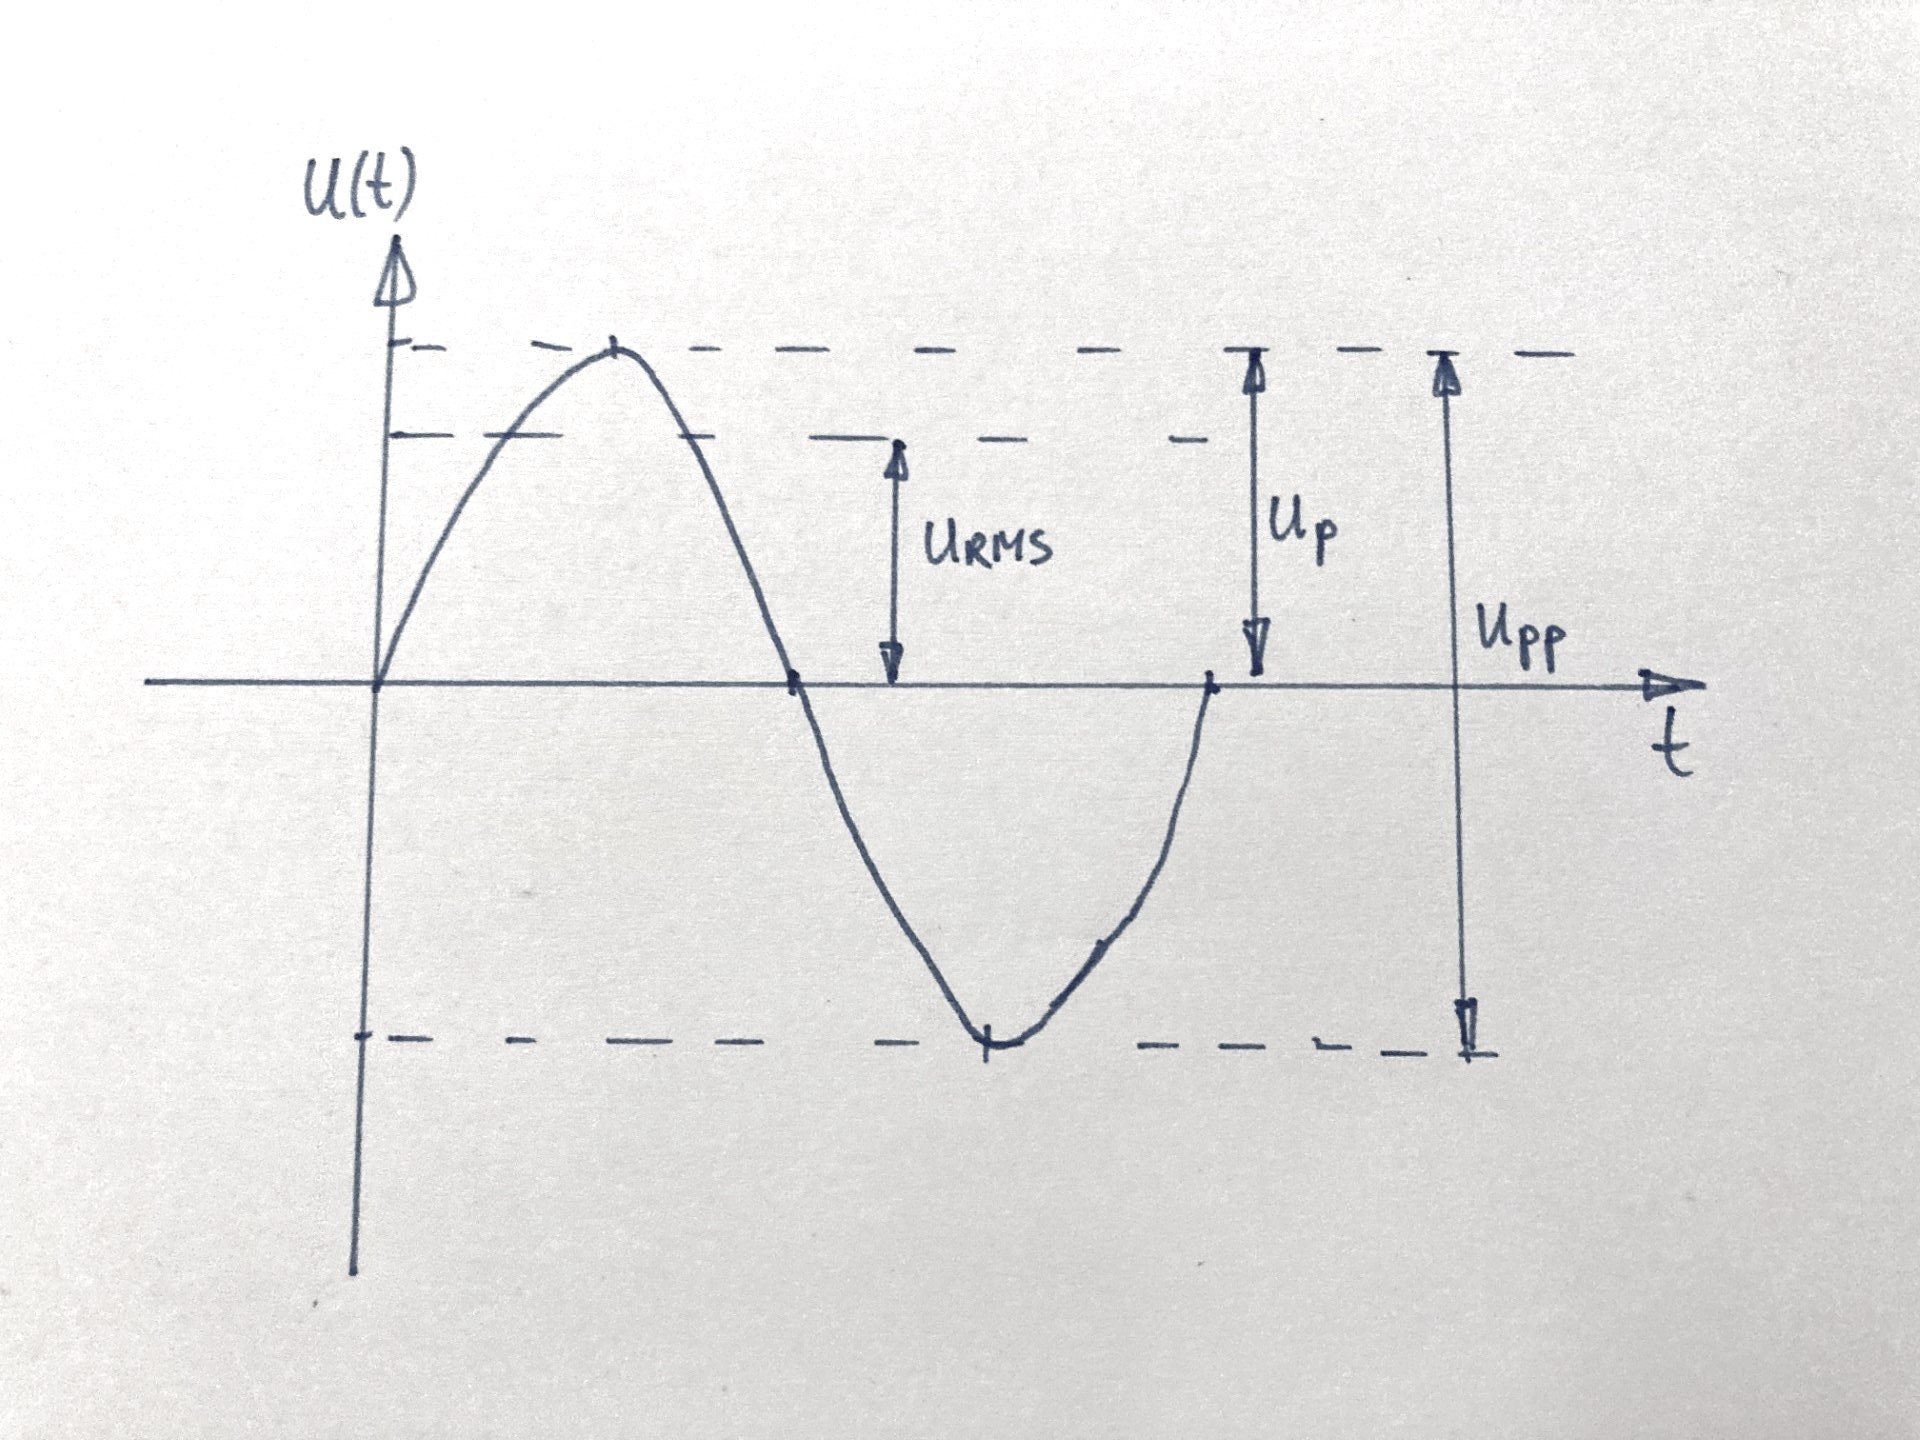 U(t)
URMS
Up
Upp
t